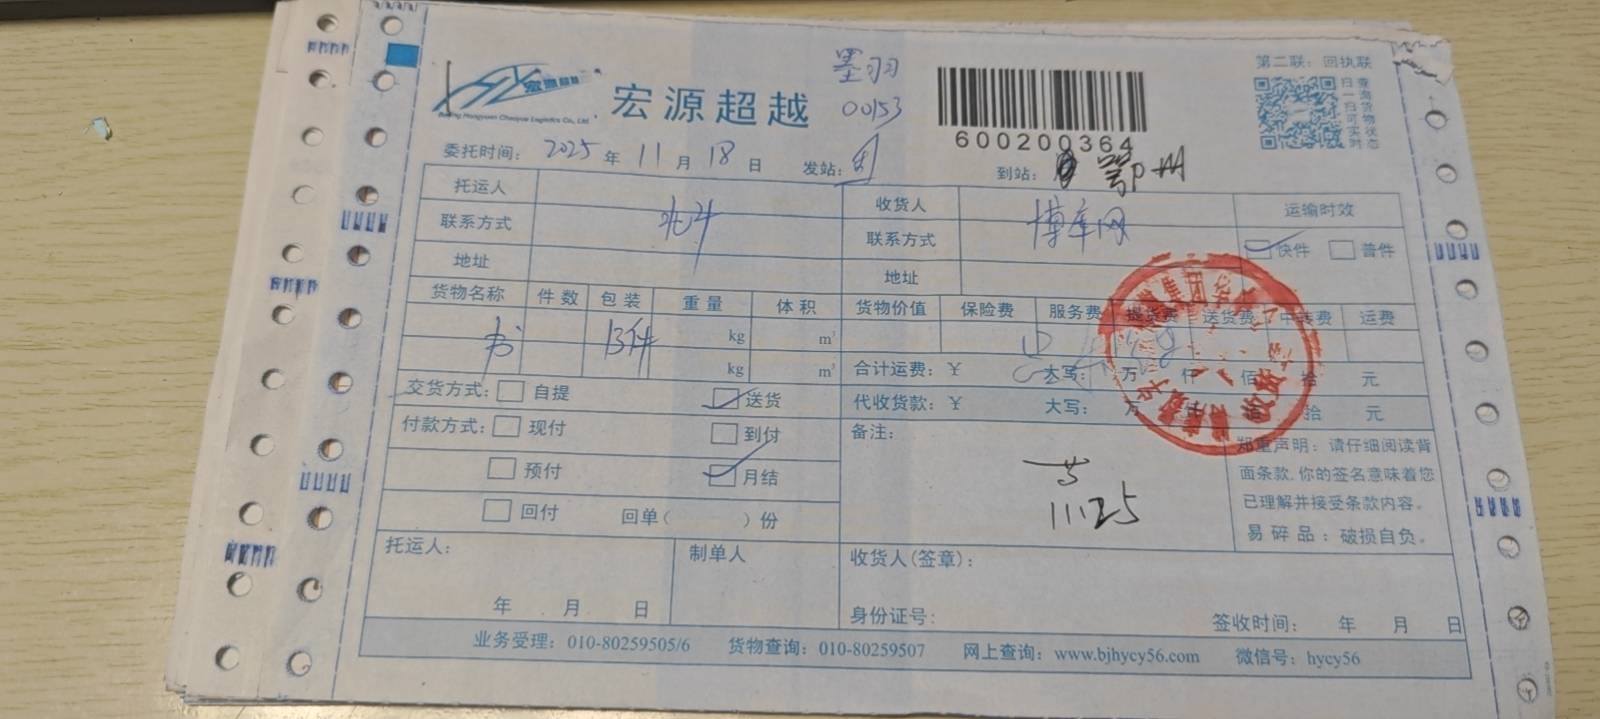 第二联：回执联
扫一扫可实时
查询货物状态
宏源超越
Beijing Hongyuan Chaoyue Logistics Co., Ltd.
墨羽
00153
600200364
委托时间： 2025 年 11 月 18 日 发站： 到站： 鄂州
托运人 收货人 博库网 运输时效
联系方式 联系方式 快件 普件
地址 地址
货物名称 件数 包装 重量 体积 货物价值 保险费 服务费 提货费 送货费 中转费 运费
书 13件 kg m³
kg m³ 合计运费：￥ 大写： 万 仟 佰 拾 元
交货方式： 自提 送货 代收货款：￥ 大写： 万 拾 元
付款方式： 现付 到付 备注：
预付 月结
回付 回单（ ）份
11.25
郑重声明：请仔细阅读背
面条款，你的签名意味着您
已理解并接受条款内容。
易碎品：破损自负。
托运人： 制单人 收货人（签章）：
年 月 日 身份证号： 签收时间： 年 月 日
业务受理：010-80259505/6 货物查询：010-80259507 网上查询：www.bjhycy56.com 微信号：hycy56